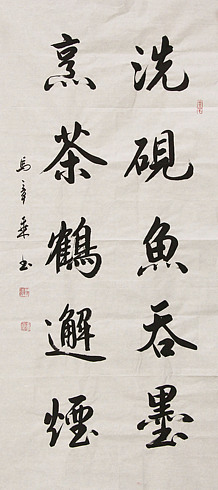 洗硯魚吞墨
烹茶鶴邂煙